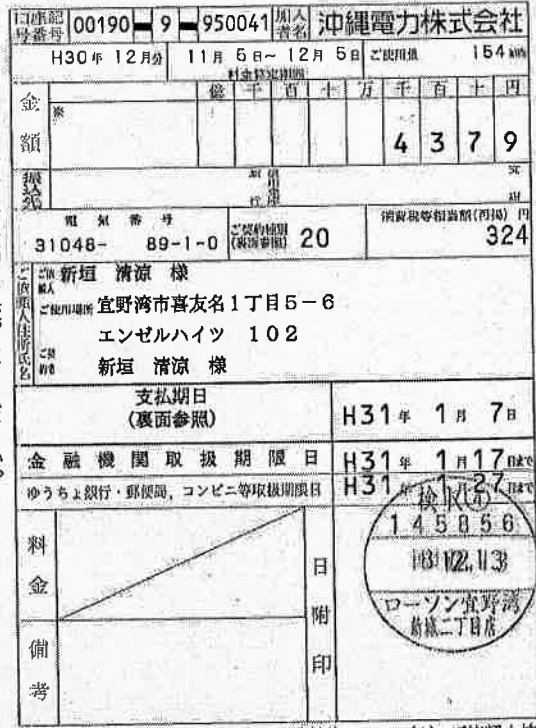 口座記号番号 00190 9 950041 加入者名 沖縄電力株式会社
H30年 12月分 11月 5日~ 12月 5日 ご使用量 154 kWh
料金算定期間
金額 億 千 百 十 万 千 百 十 円
※ 4 3 7 9
電気番号 ご契約種別(裏面参照) 20 消費税等相当額(再掲) 円
31048- 89-1-0 324
ご依頼人住所氏名
ご依頼人 新垣 清涼 様
ご使用場所 宜野湾市喜友名1丁目5-6
エンゼルハイツ 102
ご契約者 新垣 清涼 様
支払期日
(裏面参照) H31年 1月 7日
金融機関取扱期限日 H31年 1月17日まで
ゆうちょ銀行・郵便局, コンビニ等取扱期限日 H31年 1月27日まで
料金
備考
日附印
145856
ローソン宜野湾